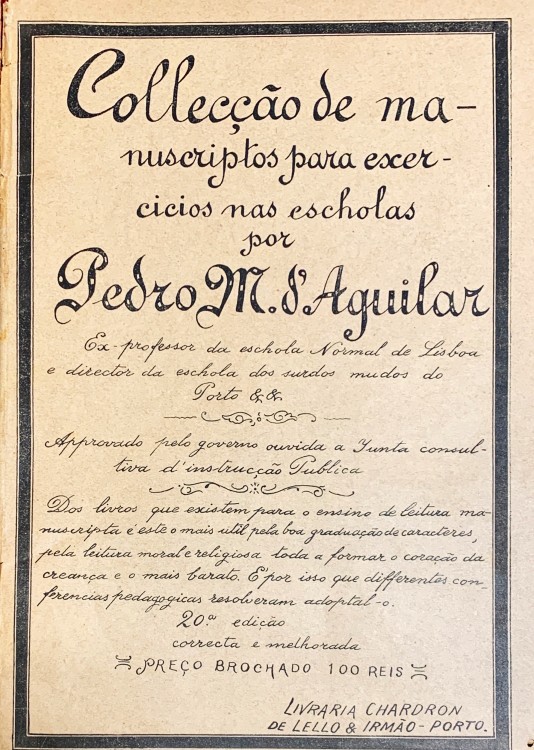 Collecção de ma-
nuscriptos para exer-
cicios nas escholas
por
Pedro M. d'Aguilar
Ex-professor da eschola Normal de Lisboa
e director da eschola dos surdos mudos do
Porto & &.
Approvado pelo governo ouvida a Junta consul-
tiva d'instrucção Publica
Dos livros que existem para o ensino de leitura ma-
nuscripta é este o mais util pela boa graduação de caracteres,
pela leitura moral e religiosa toda a formar o coração da
creança e o mais barato. E' por isso que differentes con-
ferencias pedagogicas resolveram adoptal-o.
20.ª edição
correcta e melhorada
PREÇO BROCHADO 100 REIS
LIVRARIA CHARDRON
DE LELLO & IRMÃO - PORTO.